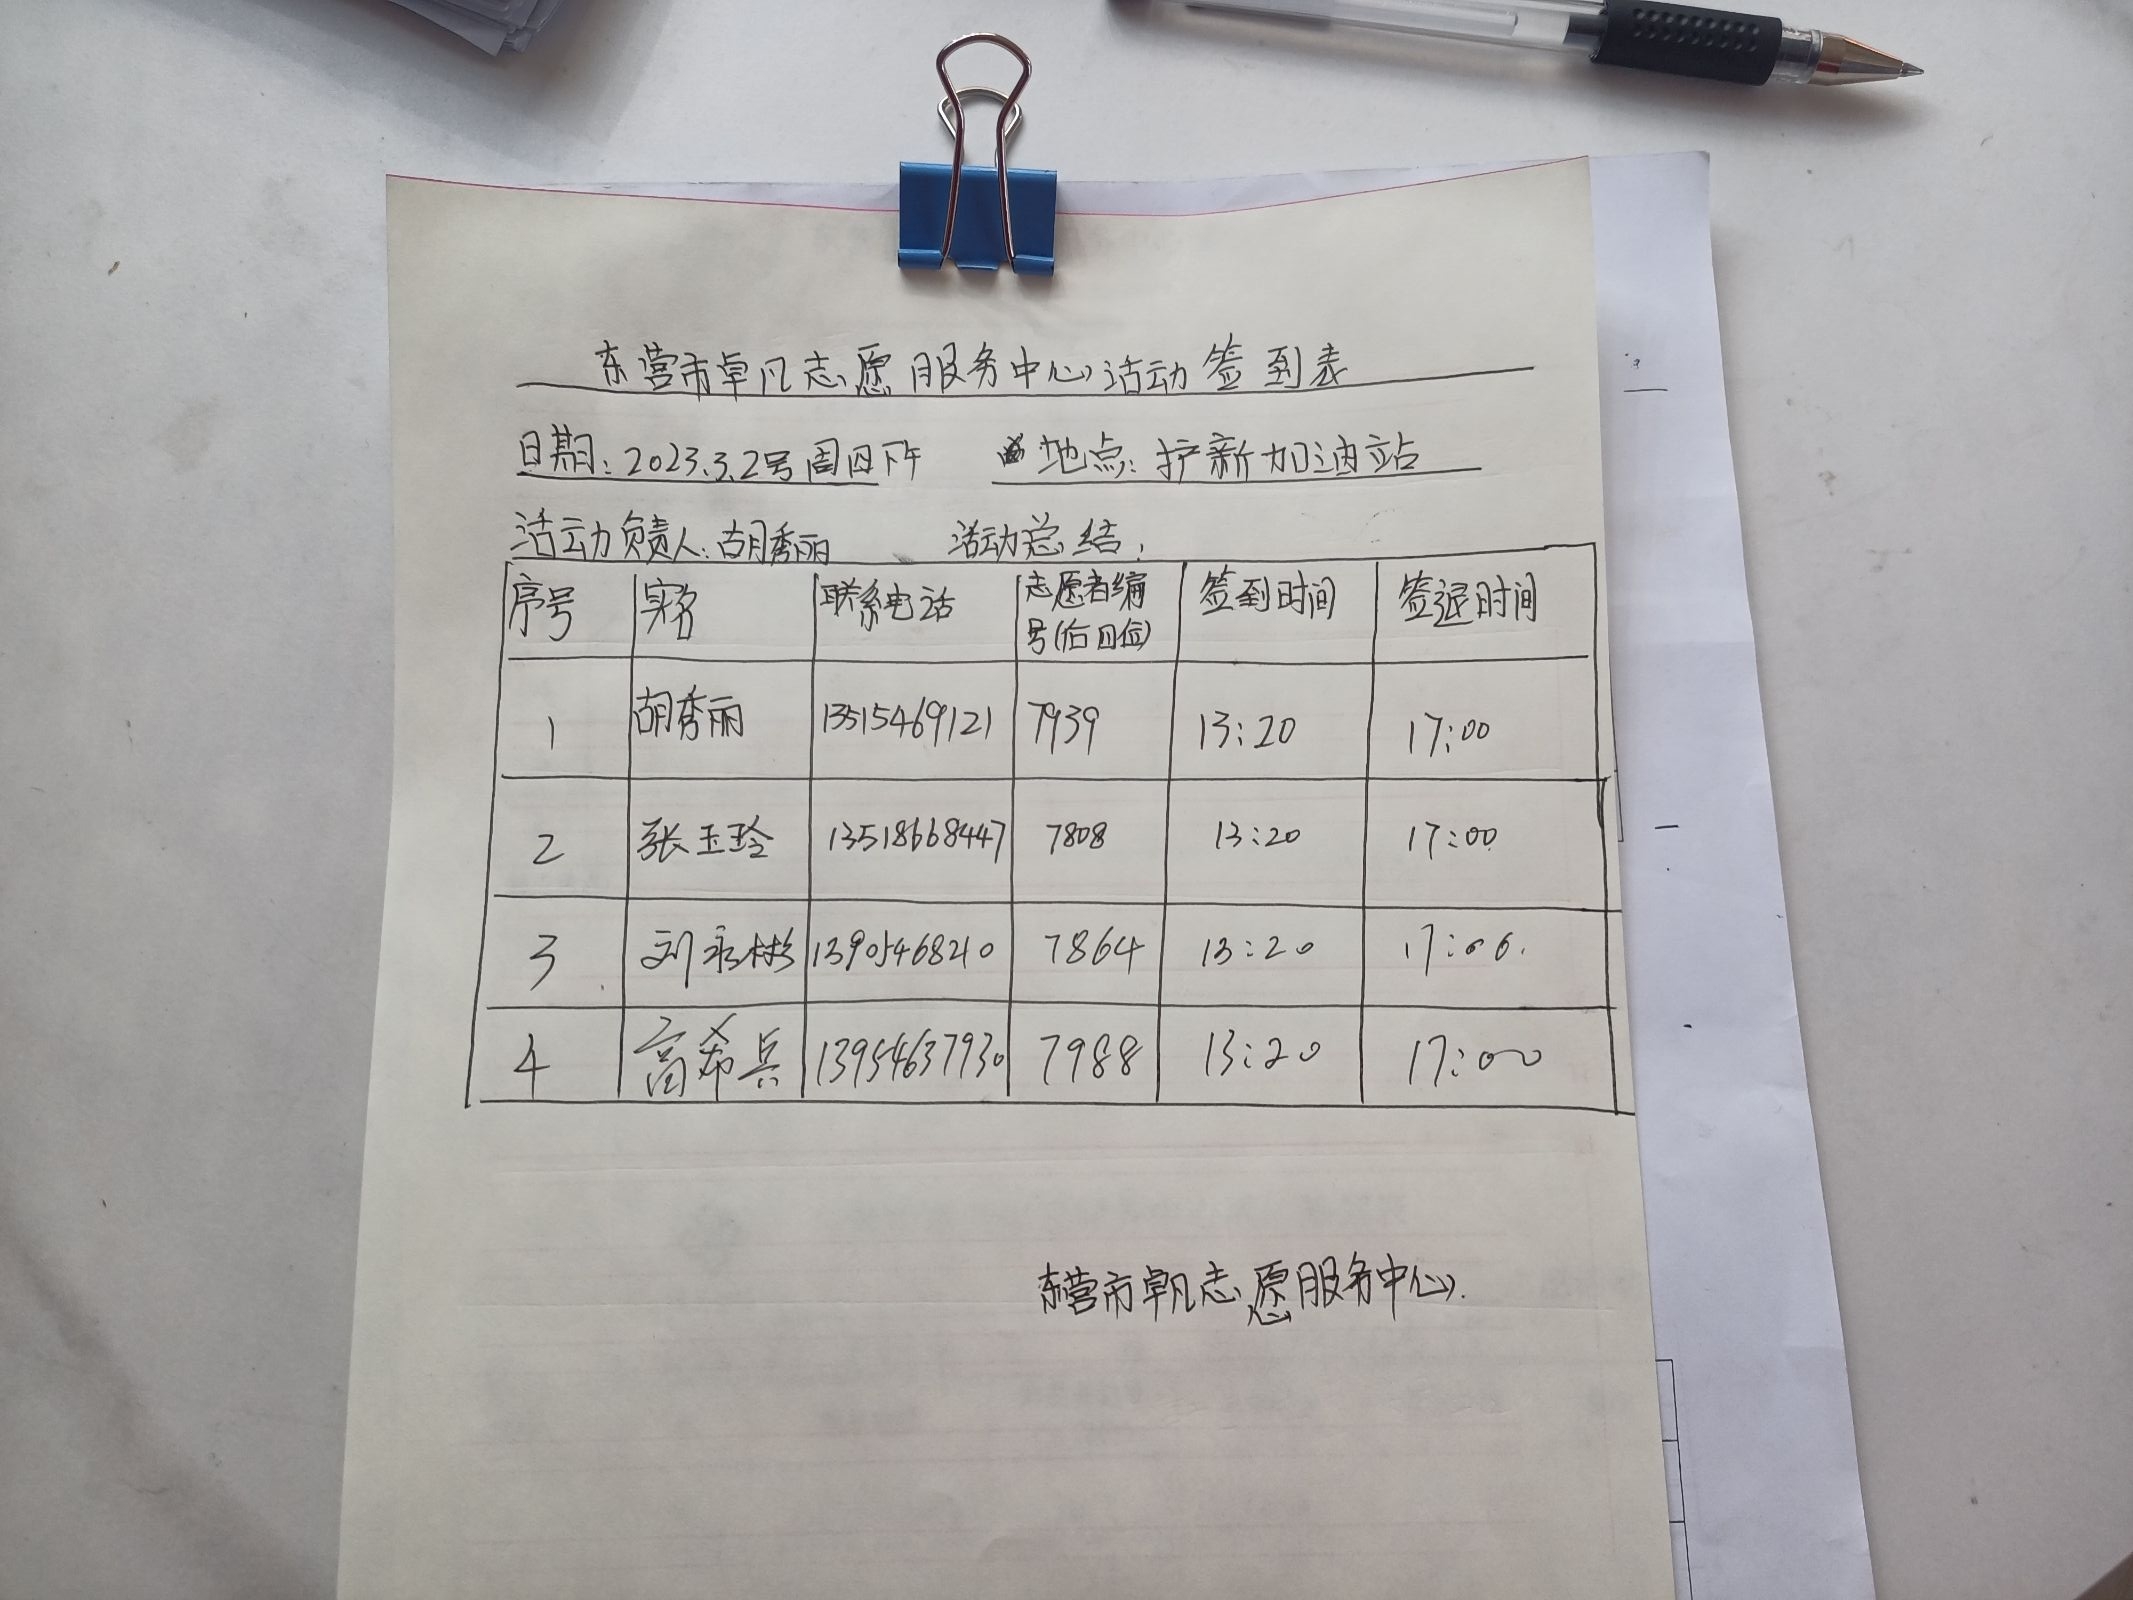 东营市卓凡志愿服务中心活动签到表
日期:2023.3.2号周四下午 地点:护新加油站
活动负责人:胡秀丽 活动总结:
序号 实名 联系电话 志愿者编号(后四位) 签到时间 签退时间
1 胡秀丽 13515469121 7939 13:20 17:00
2 张玉玲 13518668447 7808 13:20 17:00
3 刘永彬 13905468210 7864 13:20 17:00.
4 高希兵 13954637930 7988 13:20 17:00
东营市卓凡志愿服务中心.